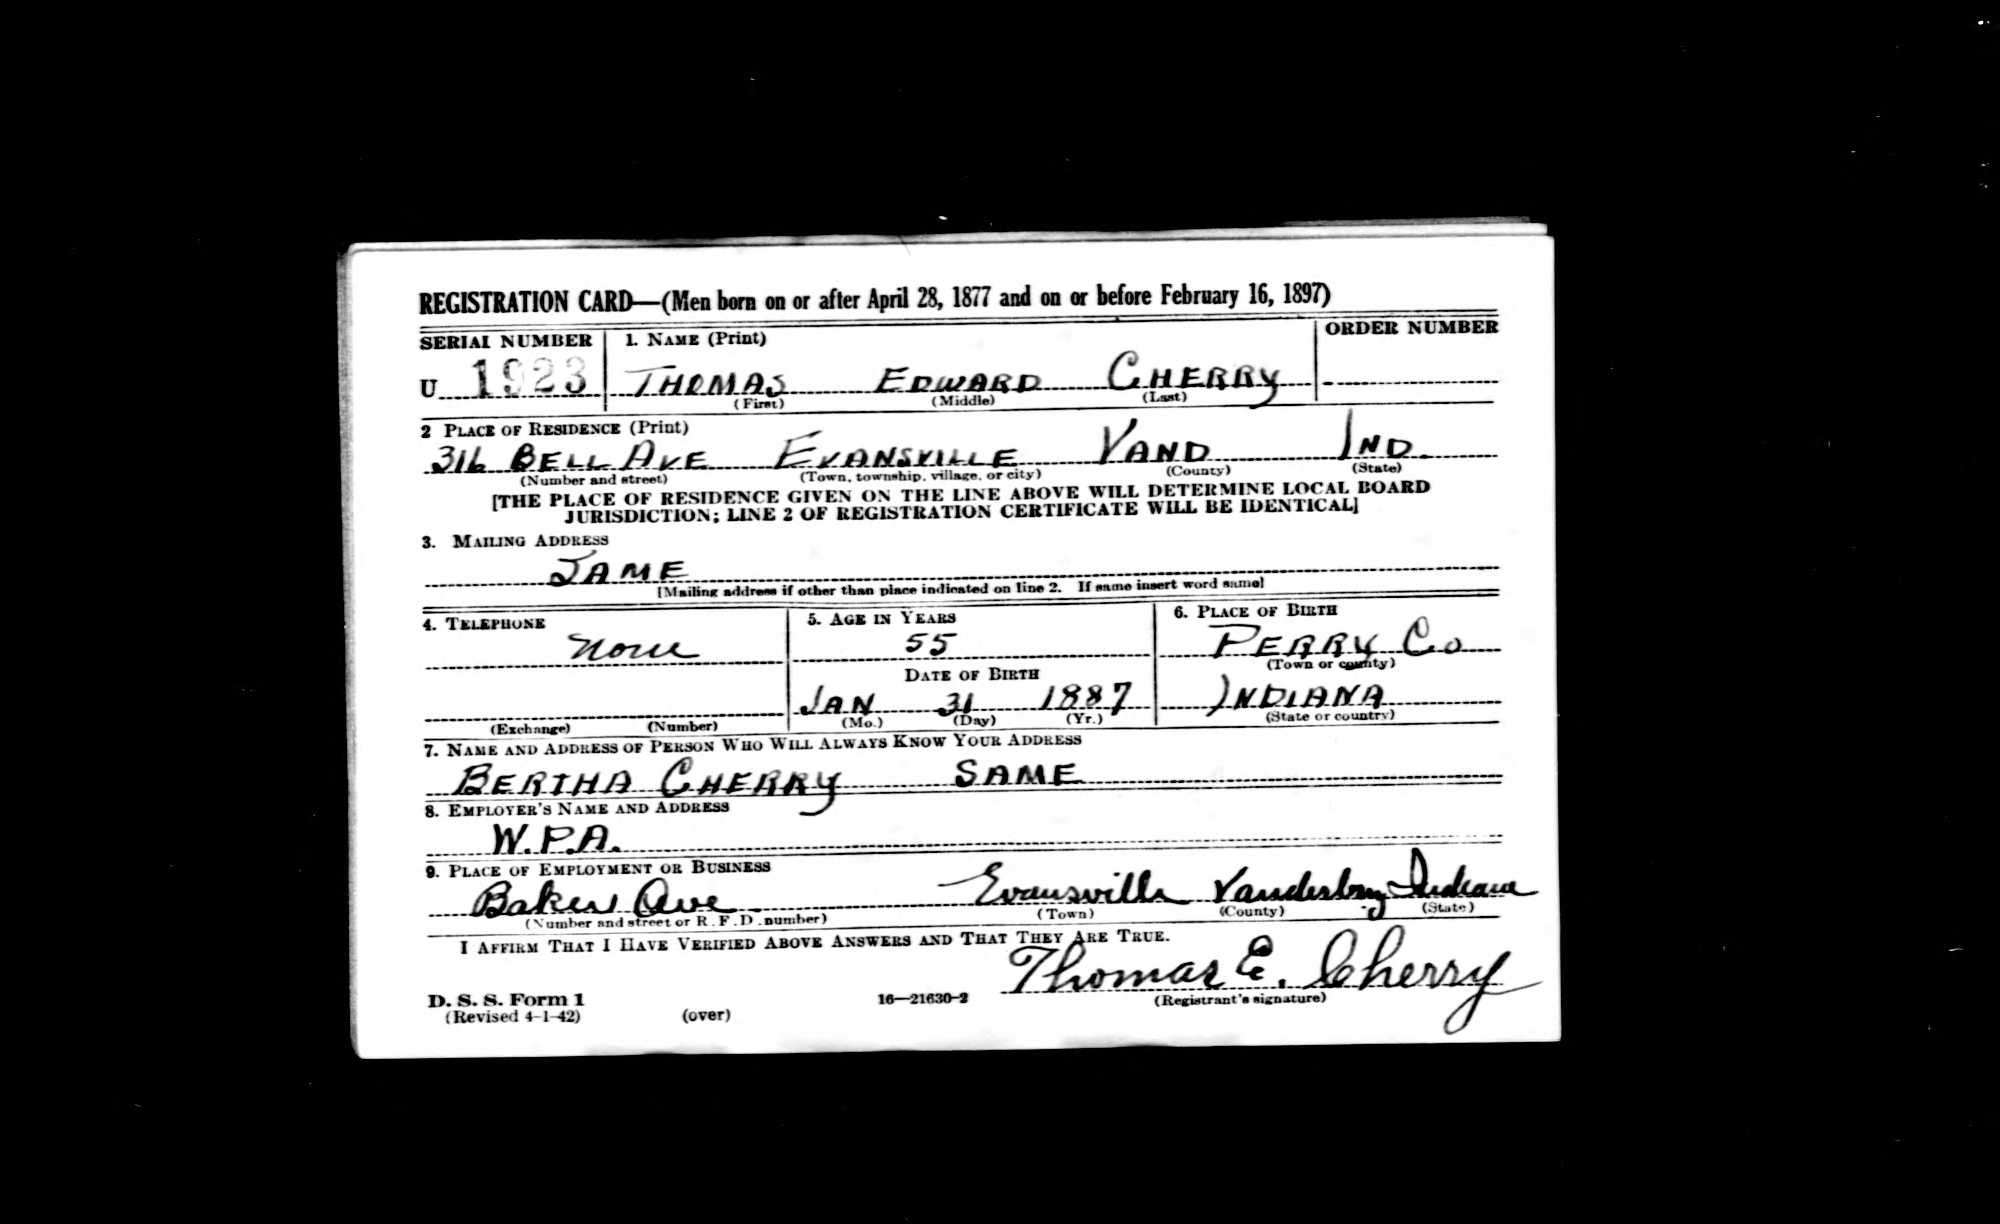 REGISTRATION CARD—(Men born on or after April 28, 1877 and on or before February 16, 1897)
SERIAL NUMBER 1. NAME (Print) ORDER NUMBER
U 1923 THOMAS EDWARD CHERRY
(First) (Middle) (Last)
2 PLACE OF RESIDENCE (Print)
316 BELL AVE EVANSVILLE VAND IND.
(Number and street) (Town, township, village, or city) (County) (State)
[THE PLACE OF RESIDENCE GIVEN ON THE LINE ABOVE WILL DETERMINE LOCAL BOARD
JURISDICTION; LINE 2 OF REGISTRATION CERTIFICATE WILL BE IDENTICAL]
3. MAILING ADDRESS
SAME
[Mailing address if other than place indicated on line 2. If same insert word same]
4. TELEPHONE 5. AGE IN YEARS 6. PLACE OF BIRTH
None 55 PERRY CO
(Town or county)
DATE OF BIRTH
JAN 31 1887 INDIANA
(Exchange) (Number) (Mo.) (Day) (Yr.) (State or country)
7. NAME AND ADDRESS OF PERSON WHO WILL ALWAYS KNOW YOUR ADDRESS
BERTHA CHERRY SAME
8. EMPLOYER'S NAME AND ADDRESS
W.P.A.
9. PLACE OF EMPLOYMENT OR BUSINESS
Baker Ave Evansville Vanderburg Indiana
(Number and street or R. F. D. number) (Town) (County) (State)
I AFFIRM THAT I HAVE VERIFIED ABOVE ANSWERS AND THAT THEY ARE TRUE.
Thomas E. Cherry
D. S. S. Form 1 16—21630-2 (Registrant's signature)
(Revised 4-1-42) (over)